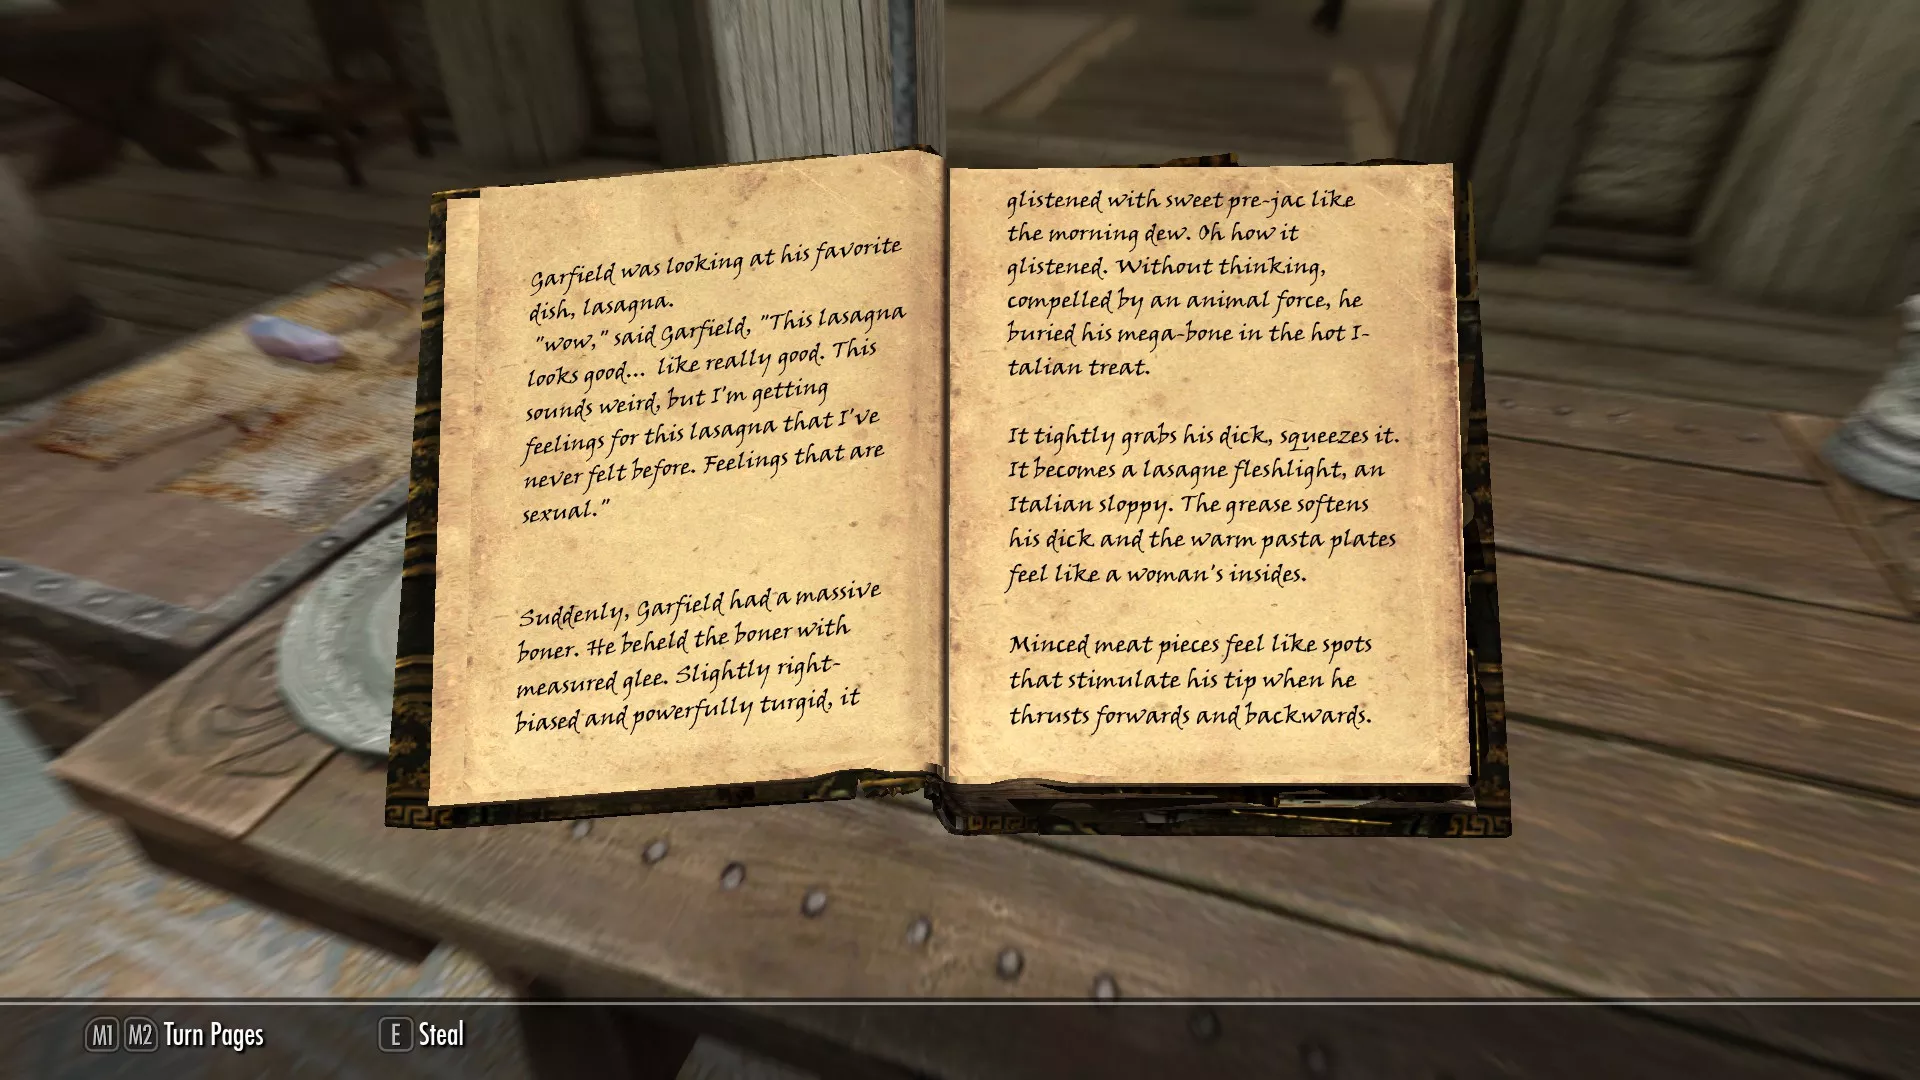 Garfield was looking at his favorite
dish, lasagna.
"wow," said Garfield, "This lasagna
looks good... like really good. This
sounds weird, but I'm getting
feelings for this lasagna that I've
never felt before. Feelings that are
sexual."
Suddenly, Garfield had a massive
boner. He beheld the boner with
measured glee. Slightly right-
biased and powerfully turgid, it
glistened with sweet pre-jac like
the morning dew. Oh how it
glistened. Without thinking,
compelled by an animal force, he
buried his mega-bone in the hot I-
talian treat.
It tightly grabs his dick, squeezes it.
It becomes a lasagne fleshlight, an
Italian sloppy. The grease softens
his dick and the warm pasta plates
feel like a woman's insides.
Minced meat pieces feel like spots
that stimulate his tip when he
thrusts forwards and backwards.
M1 M2 Turn Pages E Steal